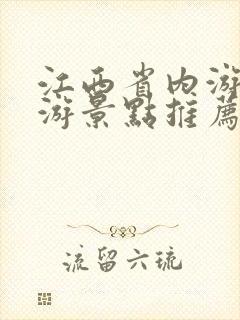 江西省内游
游景點推薦
流留六琉